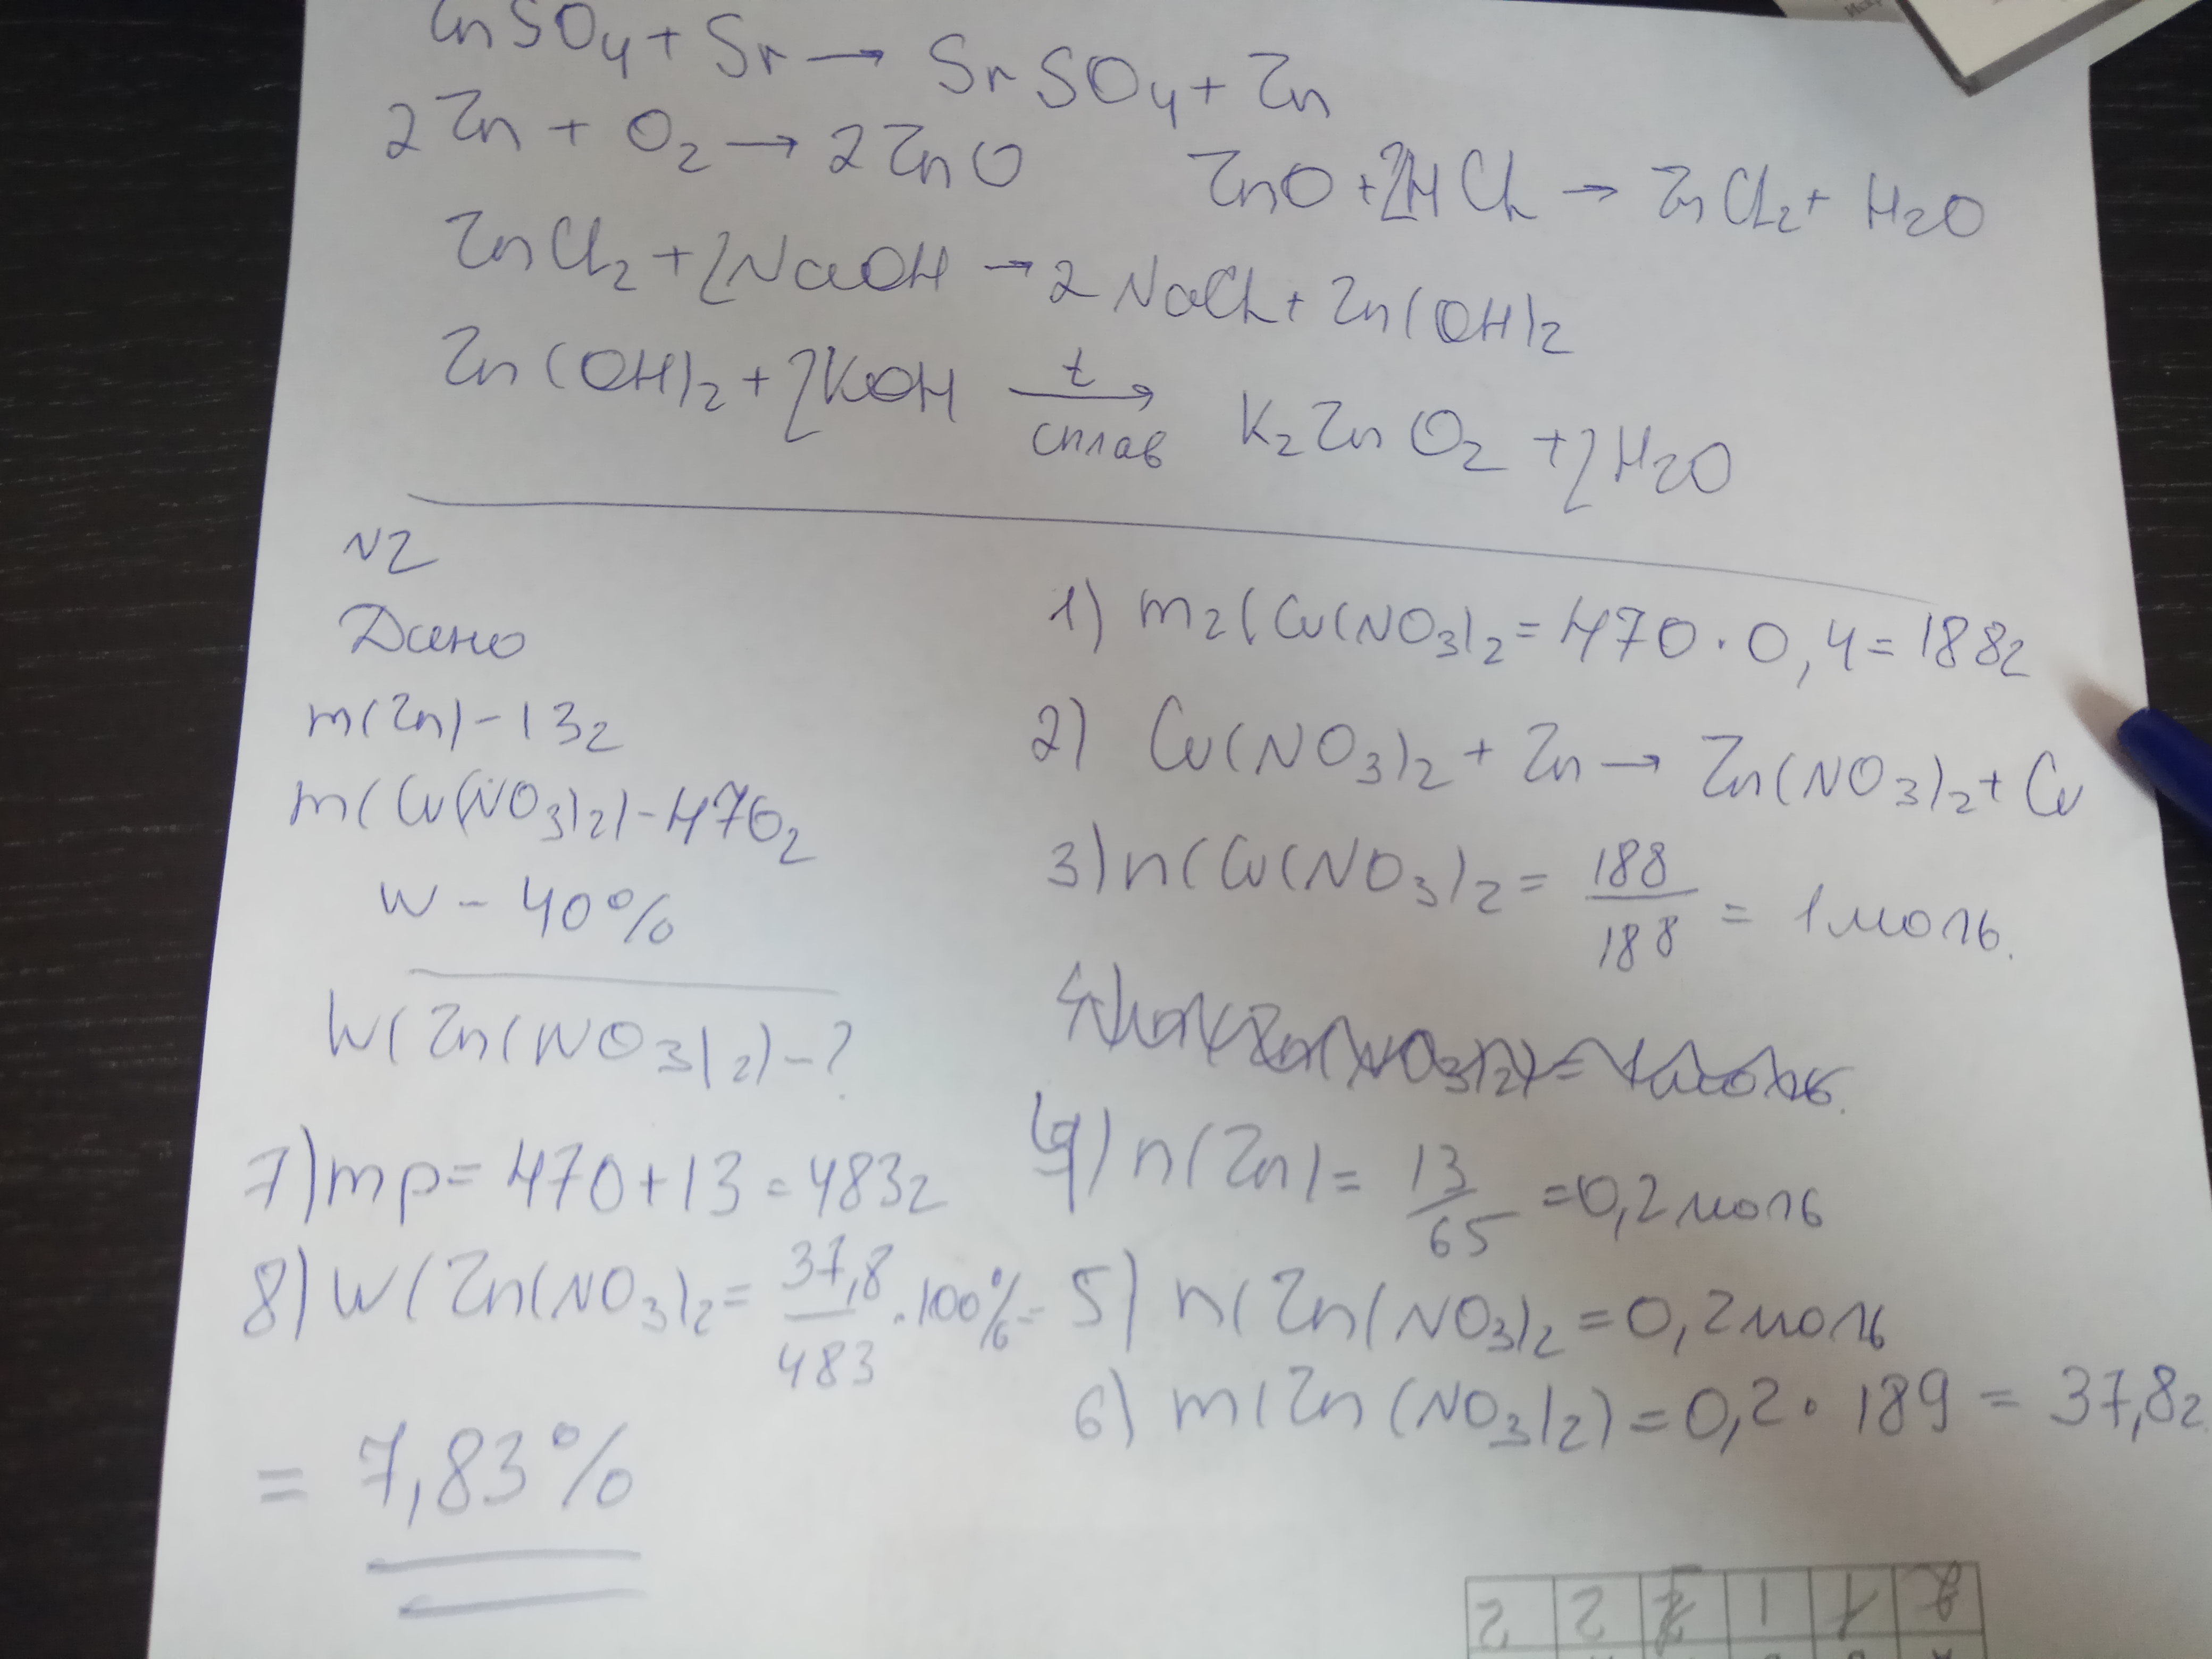 ZnSO4 + Sr → SrSO4 + Zn
2Zn + O2 → 2ZnO
ZnO + 2HCl → ZnCl2 + H2O
ZnCl2 + 2NaOH → 2NaCl + Zn(OH)2
Zn(OH)2 + 2KOH t→ сплав K2ZnO2 + 2H2O
N2
Дано
m(Zn) - 13г
m(Cu(NO3)2) - 470г
W - 40%
W(Zn(NO3)2) - ?
1) m2(Cu(NO3)2 = 470 · 0,4 = 188г
2) Cu(NO3)2 + Zn → Zn(NO3)2 + Cu
3) n(Cu(NO3)2 = 188/188 = 1 моль.
4) n(Zn) = 13/65 = 0,2 моль
5) n(Zn(NO3)2 = 0,2 моль
6) m(Zn(NO3)2) = 0,2 · 189 = 37,8г
7) mр = 470 + 13 = 483г
8) W(Zn(NO3)2 = 37,8/483 · 100% =
= 7,83%